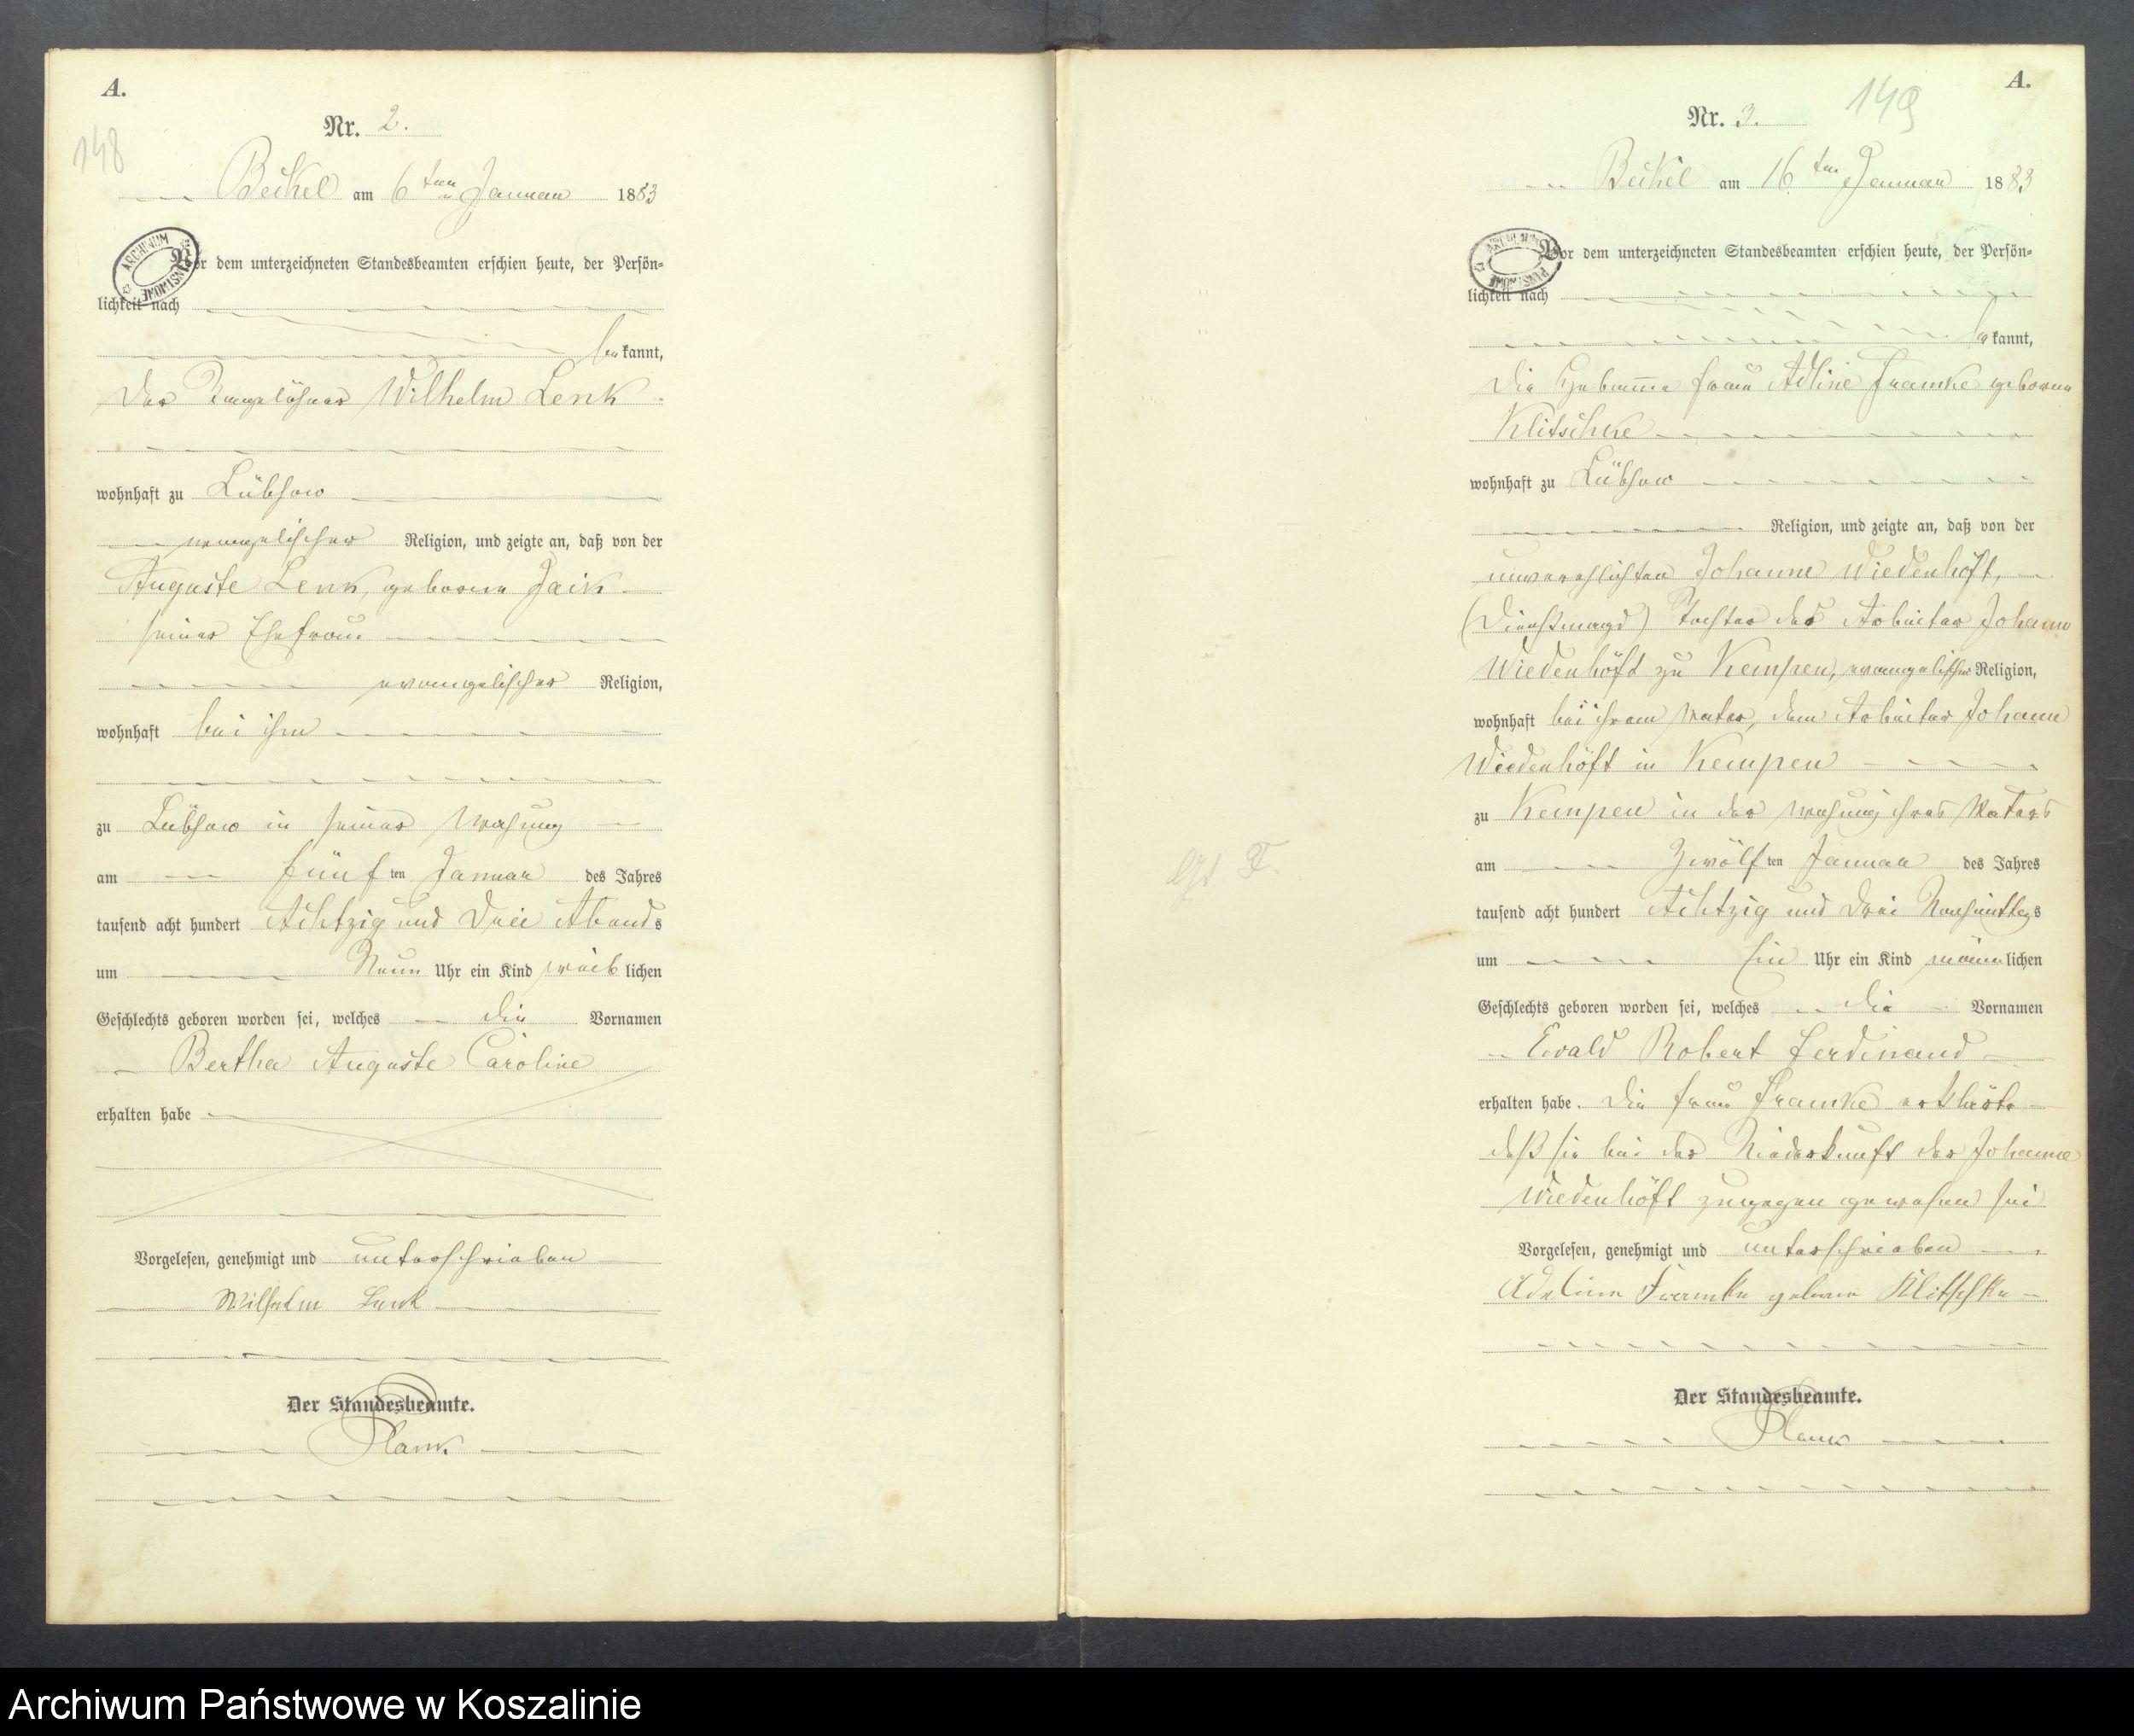 A.
148
Nr. 2.
Beikel am 6ten Januar 1883
Vor dem unterzeichneten Standesbeamten erschien heute, der Persön-
lichkeit nach
bekannt,
Der Tagelöhner Wilhelm Lenk
wohnhaft zu Lübsow
evangelischer Religion, und zeigte an, daß von der
Auguste Lenk, geborene Jaik
seiner Ehefrau
evangelischer Religion,
wohnhaft bei ihm
zu Lübsow in seiner Wohnung
am fünften Januar des Jahres
tausend acht hundert Achtzig und Drei Abends
um Neun Uhr ein Kind weiblichen
Geschlechts geboren worden sei, welches die Vornamen
Bertha Auguste Caroline
erhalten habe
Vorgelesen, genehmigt und unterschrieben
Wilhelm Lenk
Der Standesbeamte.
Plank
A.
149
Nr. 3.
Beikel am 16ten Januar 1883
Vor dem unterzeichneten Standesbeamten erschien heute, der Persön-
lichkeit nach
bekannt,
Die Hebamme Frau Adline Framke geborene
Klitschke
wohnhaft zu Lübsow
Religion, und zeigte an, daß von der
unverehlichten Johanne Wiedenhöft,
(Dienstmagd) Tochter des Arbeiter Johann
Wiedenhöft zu Kempen, evangelischer Religion,
wohnhaft bei ihrem Vater, dem Arbeiter Johann
Wiedenhöft in Kempen
zu Kempen in der Wohnung ihres Vaters
am Zwölften Januar des Jahres
tausend acht hundert Achtzig und Drei Nachmittags
um Ein Uhr ein Kind männlichen
Geschlechts geboren worden sei, welches die Vornamen
Ewald Robert Ferdinand
erhalten habe. Die Frau Framke erklärte
daß sie bei der Niederkunft der Johanne
Wiedenhöft zugegen gewesen sei
Vorgelesen, genehmigt und unterschrieben
Adeline Framke geborne Klitschke
Der Standesbeamte.
Plank
Archiwum Państwowe w Koszalinie